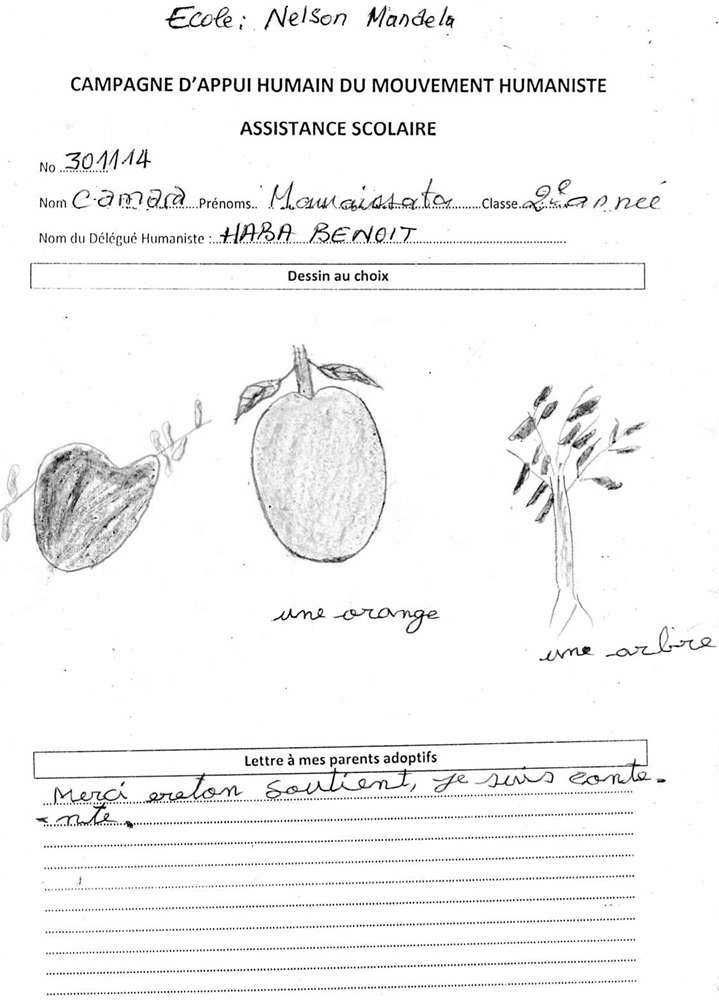 Ecole: Nelson Mandela
CAMPAGNE D'APPUI HUMAIN DU MOUVEMENT HUMANISTE
ASSISTANCE SCOLAIRE
No 301114
Nom Camara Prénoms Classe 2e année
Nom du Délégué Humaniste : HABA BENOIT
Dessin au choix
une orange
une arbre
Lettre à mes parents adoptifs
Merci soutient, je suis conte-
-nte.